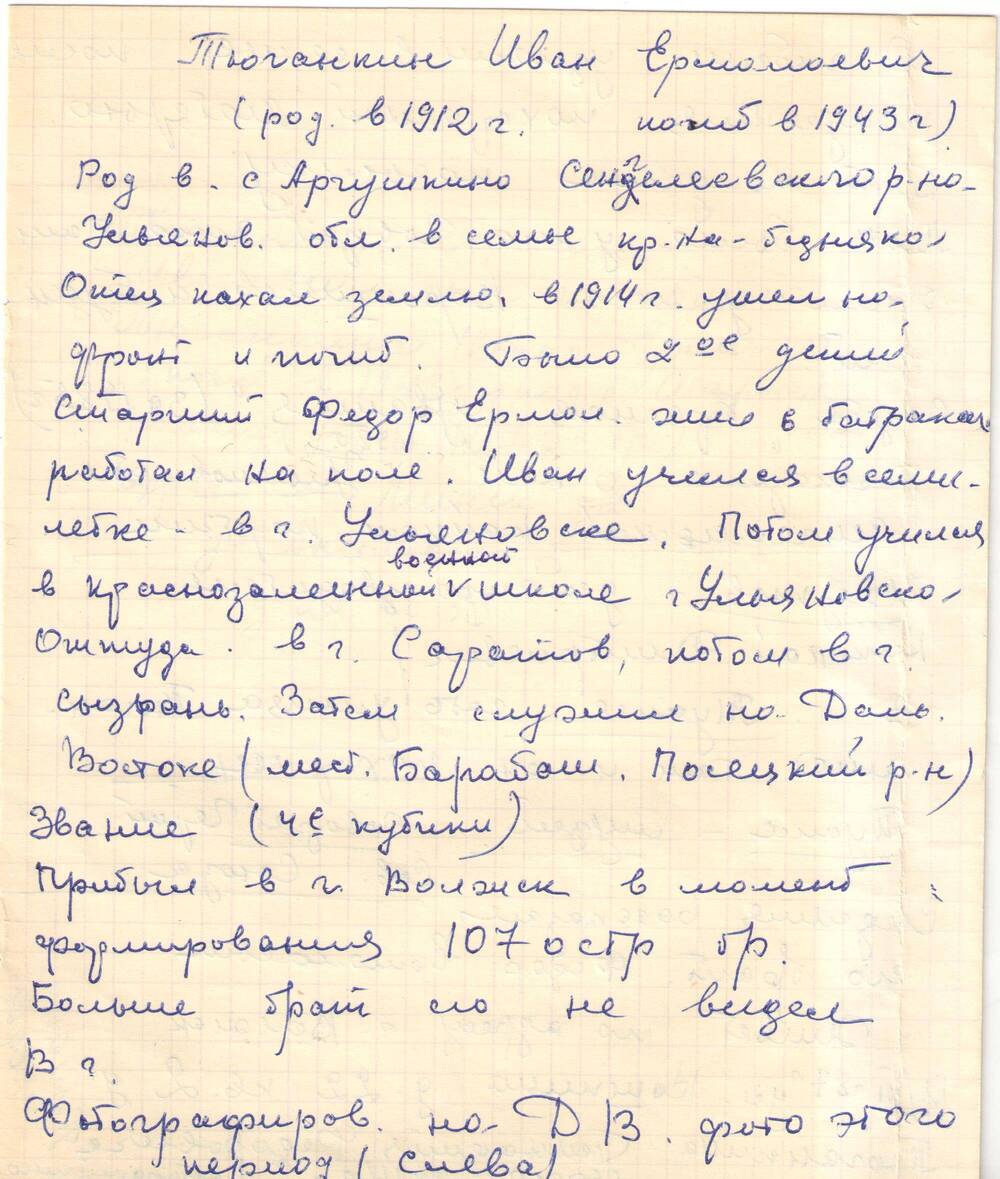 Тюганкин Иван Ермолоевич
(род. в 1912 г. погиб в 1943 г)
Род в. с Аргушкино Сенгелеевского р-на
Ульянов. обл. в семье кр.на - бедняка
Отец пахал землю, в 1914 г. ушел на
фронт и погиб. Было 2ое детей
старший Федор Ермол. жил в батраках
работал на поле. Иван учился в семи-
летке - в г. Ульяновске. Потом учился
военной
в Краснознаменной V школе г Ульяновска
Оттуда. в г. Саратов, потом в г.
Сызрань. Затем служил на Даль.
Востоке (мест. Барабаш. Посецкий р-н)
Звание (4е кубики)
Прибыл в г. Волжск в момент
формирования 107 остр бр.
Больше брат его не видел
В г.
Фотографиров. на Д/В. фото этого
период (слева)